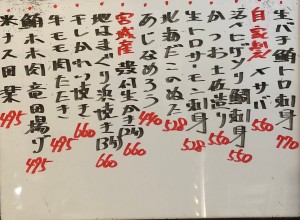 生バチ鮪トロ刺身 770
自家製〆サバ 550
活〆ヒラマサ鯛刺身 550
かつお土佐造り 550
生トロサーモン刺身 528
北海だこのぬた 528
あじなめろう 440
宮城産殻付生かき(1ヶ) 660
地はまぐり浜焼き 660
干しかれい焼き 660
牛モモ肉たたき 495
鮪ホホ肉竜田揚り 495
米ナス田楽 495